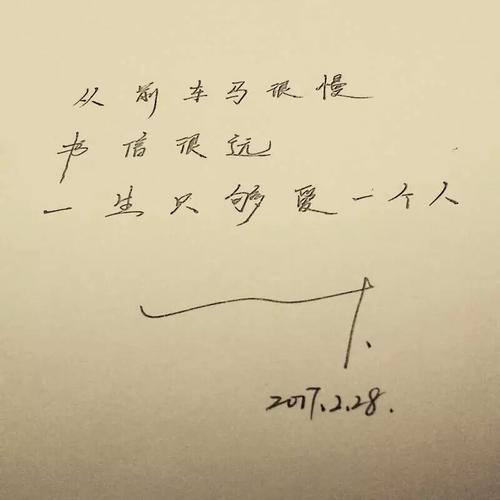 从前车马很慢
书信很远
一生只够爱一个人
2017.2.28.